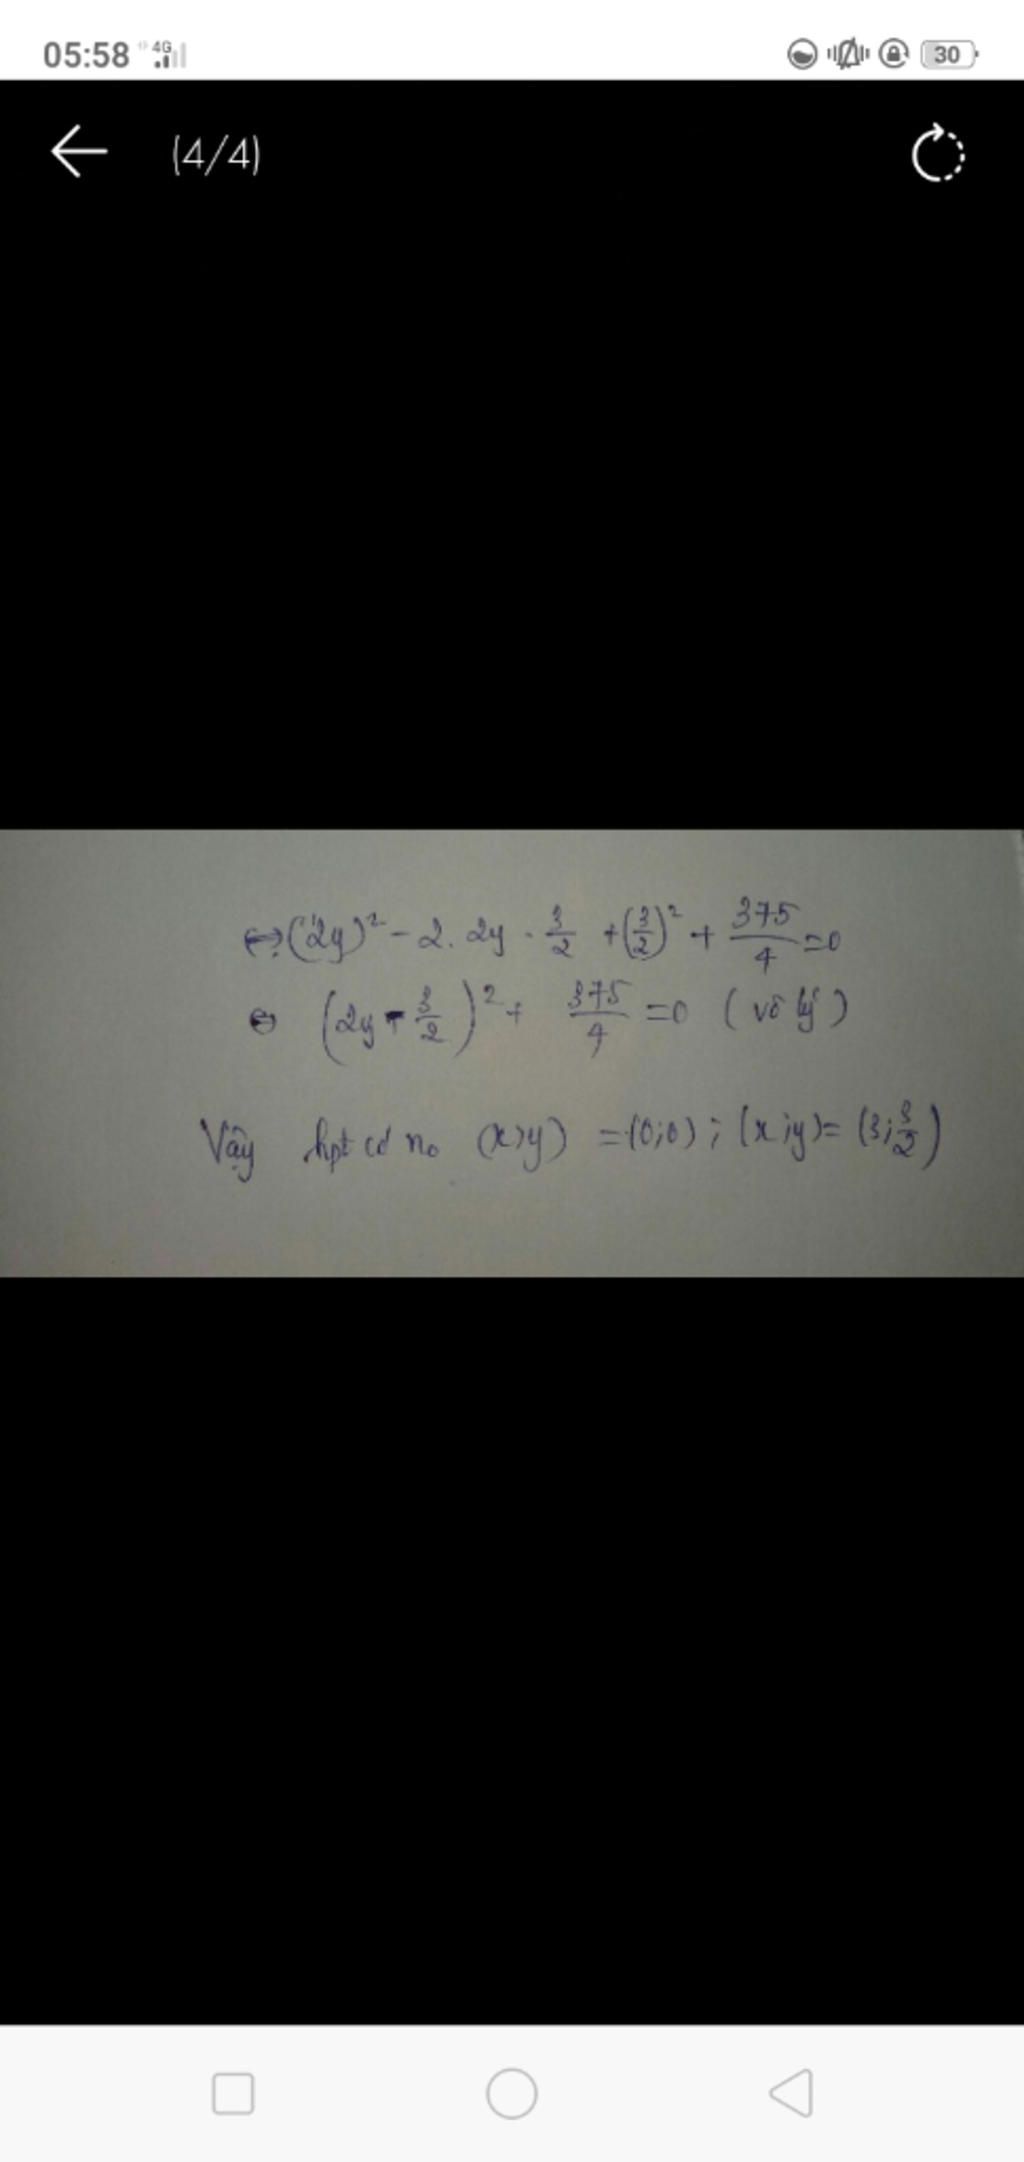 05:58 4G 30
(4/4)
⇔ (2y)² - 2. 2y . 3/2 + (3/2)² + 375/4 = 0
⇔ (2y - 3/2)² + 375/4 = 0 (vô lý)
Vậy hpt có no (x;y) = (0;0); (x;y) = (3; 3/2)